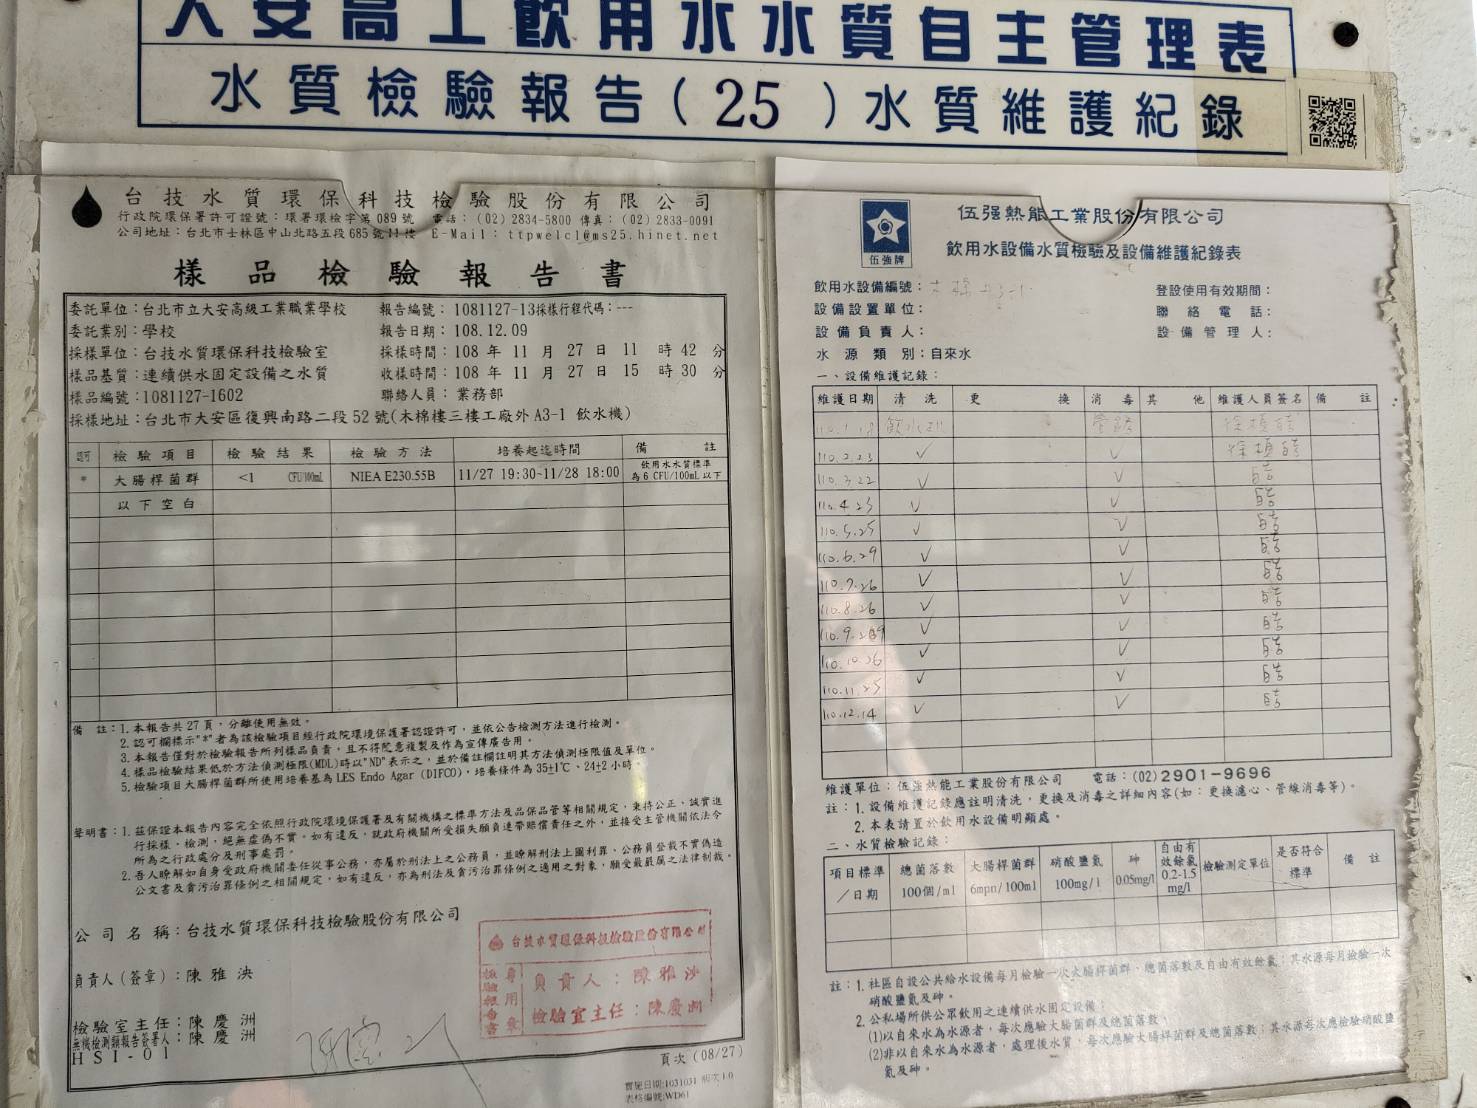 大安高工飲用水水質自主管理表
水質檢驗報告(25)水質維護紀錄
台技水質環保科技檢驗股份有限公司
行政院環保署許可證號：環署環檢字第089號 電話：(02)2834-5800 傳真：(02)2833-0091
公司地址：台北市士林區中山北路五段685號11樓 E-Mail：ttpwelcl@ms25.hinet.net
樣品檢驗報告書
委託單位：台北市立大安高級工業職業學校 報告編號：1081127-13採樣行程代碼：---
委託業別：學校 報告日期：108.12.09
採樣單位：台技水質環保科技檢驗室 採樣時間：108 年 11 月 27 日 11 時 42 分
樣品基質：連續供水固定設備之水質 收樣時間：108 年 11 月 27 日 15 時 30 分
樣品編號：1081127-1602 聯絡人員：業務部
採樣地址：台北市大安區復興南路二段52號(木棉樓三樓工廠外A3-1 飲水機)
認可 檢驗項目 檢驗結果 檢驗方法 培養起迄時間 備註
* 大腸桿菌群 <1 CFU/100mL NIEA E230.55B 11/27 19:30~11/28 18:00 飲用水水質標準為6 CFU/100mL以下
以下空白
備 註：1.本報告共27頁，分離使用無效。
2.認可欄標示"*"者為該檢驗項目經行政院環境保護署認證許可，並依公告檢測方法進行檢測。
3.本報告僅對於檢驗報告所列樣品負責，且不得隨意複製及作為宣傳廣告用。
4.樣品檢驗結果低於方法偵測極限(MDL)時以"ND"表示之，並於備註欄註明其方法偵測極限值及單位。
5.檢驗項目大腸桿菌群所使用培養基為LES Endo Agar (DIFCO)，培養條件為35±1℃、24±2小時。
聲明書：1.茲保證本報告內容完全依照行政院環境保護署及有關機構之標準方法及品保品管等相關規定，秉持公正、誠實進
行採樣、檢測，絕無虛偽不實。如有違反，就政府機關所受損失願負連帶賠償責任之外，並接受主管機關依法令
所為之行政處分及刑事處罰。
2.吾人瞭解如自身受政府機關委任從事公務，亦屬於刑法上之公務員，並瞭解刑法上圖利罪、公務員登載不實偽造
公文書及貪污治罪條例之相關規定，如有違反，亦為刑法及貪污治罪條例之適用之對象，願受最嚴厲之法律制裁。
公司名稱：台技水質環保科技檢驗股份有限公司
負責人(簽章)：陳雅泱
檢驗室主任：陳慶洲
無機檢測類報告簽署人：陳慶洲
HSI-01
台技水質環保科技檢驗股份有限公司
檢驗報告書 專用章
負責人：陳雅泱
檢驗室主任：陳慶洲
頁次(08/27)
實施日期:1031031 版次1.0
表格編號:WD61
伍強牌
伍强熱能工業股份有限公司
飲用水設備水質檢驗及設備維護紀錄表
飲用水設備編號：
登設使用有效期間：
設備設置單位： 聯絡電話：
設備負責人： 設備管理人：
水源類別：自來水
一、設備維護記錄：
維護日期 清洗 更換 消毒 其他 維護人員簽名 備註
飲水機 管路
110.2.23 ✓ ✓
110.3.22 ✓ ✓
110.4.23 ✓ ✓
110.5.25 ✓ ✓
110.6.29 ✓ ✓
110.7.26 ✓ ✓
110.8.26 ✓ ✓
110.9. ✓ ✓
110.10.26 ✓ ✓
110.11.25 ✓ ✓
110.12.14 ✓ ✓
維護單位：伍强熱能工業股份有限公司 電話：(02)2901-9696
註：1.設備維護記錄應註明清洗，更換及消毒之詳細內容(如：更換濾心、管線消毒等)。
2.本表請置於飲用水設備明顯處。
二、水質檢驗記錄：
項目標準／日期 總菌落數100個/ml 大腸桿菌群6mpn/100ml 硝酸鹽氮100mg/l 砷0.05mg/l 自由有效餘氯0.2-1.5mg/l 檢驗測定單位 是否符合標準 備註
註：1.社區自設公共給水設備每月檢驗一次大腸桿菌群、總菌落數及自由有效餘氯；其水源每月檢驗一次
硝酸鹽氮及砷。
2.公私場所供公眾飲用之連續供水固定設備：
(1)以自來水為水源者，每次應驗大腸菌群及總菌落數，
(2)非以自來水為水源者，處理後水質，每次應驗大腸桿菌群及總菌落數；其水源每次應檢驗硝酸鹽
氮及砷。